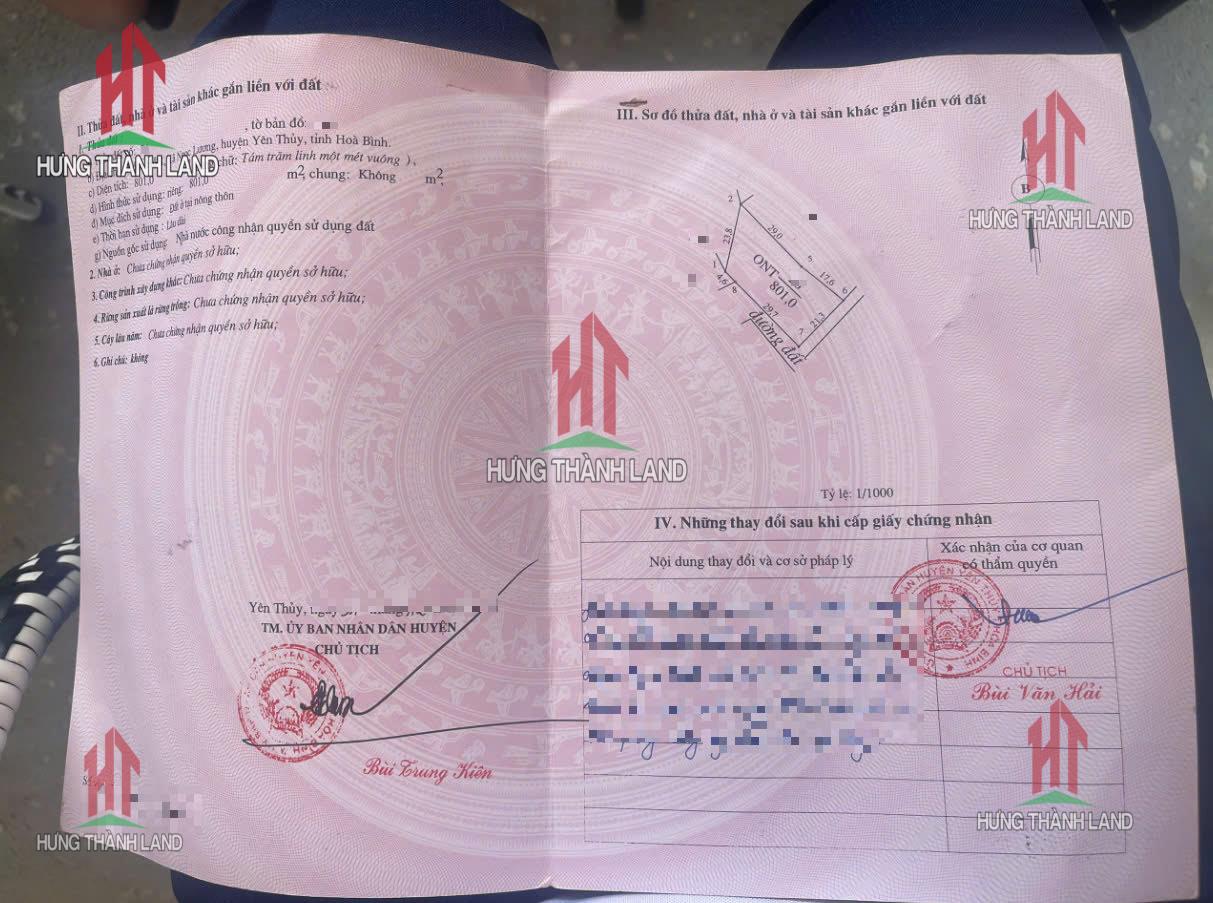 II. Thửa đất, nhà ở và tài sản khác gắn liền với đất
1. Thửa đất
, tờ bản đồ:
Ngọc Lương, huyện Yên Thủy, tỉnh Hoà Bình.
c) Diện tích: 801,0 chữ: Tám trăm linh một mét vuông ),
d) Hình thức sử dụng: riêng: 801,0 m², chung: Không m²,
đ) Mục đích sử dụng: Đất ở tại nông thôn
e) Thời hạn sử dụng: Lâu dài
g) Nguồn gốc sử dụng Nhà nước công nhận quyền sử dụng đất
2. Nhà ở: Chưa chứng nhận quyền sở hữu;
3. Công trình xây dựng khác: Chưa chứng nhận quyền sở hữu;
4. Rừng sản xuất là rừng trồng: Chưa chứng nhận quyền sở hữu;
5. Cây lâu năm: Chưa chứng nhận quyền sở hữu;
6. Ghi chú: không
Yên Thủy,
TM. ỦY BAN NHÂN DÂN HUYỆN
CHỦ TỊCH
Bùi Trung Kiên
III. Sơ đồ thửa đất, nhà ở và tài sản khác gắn liền với đất
B
2
29,0
23,8
5
1
ONT
801,0
17,6
6
4,6
8
29,7
21,3
7
đường đất
Tỷ lệ: 1/1000
IV. Những thay đổi sau khi cấp giấy chứng nhận
Nội dung thay đổi và cơ sở pháp lý
Xác nhận của cơ quan
có thẩm quyền
CHỦ TỊCH
Bùi Văn Hải
HT
HƯNG THÀNH LAND
HT
HƯNG THÀNH LAND
HT
HƯNG THÀNH LAND
HT
HƯNG THÀNH LAND
HT
HƯNG THÀNH LAND